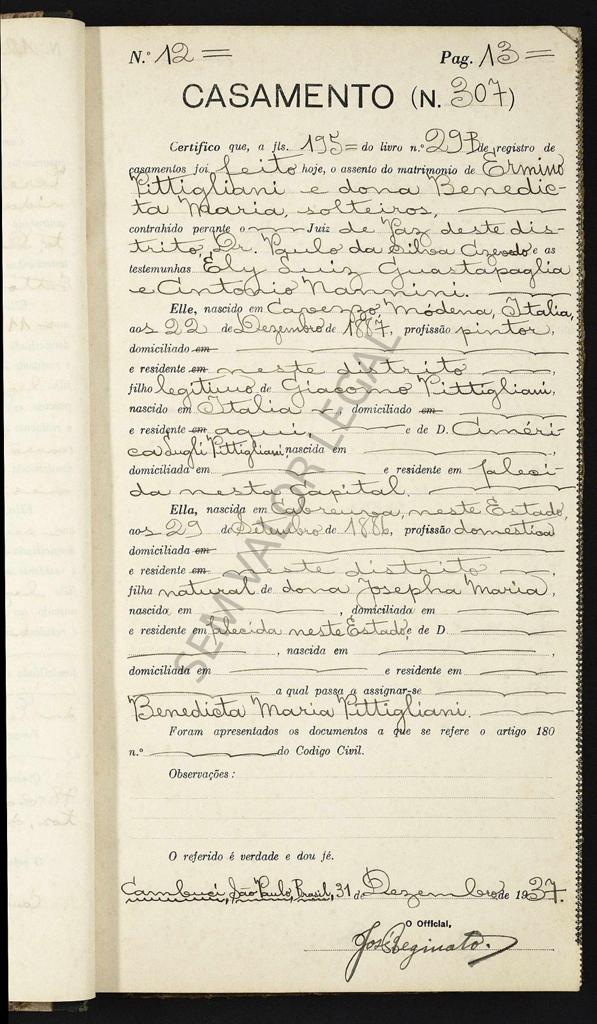 N.º 12 =
Pag. 13 =
CASAMENTO (N. 307)
Certifico que, a fls. 195 = do livro n.º 29B de registro de
casamentos foi feito hoje, o assento do matrimonio de Ermino
Pittigliani e dona Benedic-
ta Maria, solteiros,
contrahido perante o Juiz de Paz deste dis-
trito, Dr. Paulo da Silva Azevedo e as
testemunhas Ely Luiz Guastapaglia
e Antonio Nannini.
Elle, nascido em Cavezzo, Módena, Italia,
aos 22 de Dezembro de 1887, profissão pintor,
domiciliado em
e residente em neste distrito,
filho legitimo de Giacomo Pittigliani,
nascido em Italia, domiciliado em
e residente em aqui, e de D. Améri-
ca Lugli Pittigliani, nascida em
domiciliada em e residente em faleci-
da nesta Capital.
Ella, nascida em Cabreuva, neste Estado,
aos 29 de Setembro de 1886, profissão domestica
domiciliada em
e residente em neste distrito,
filha natural de dona Josepha Maria,
nascido em , domiciliado em
e residente em falecida neste Estado, e de D.
, nascida em
domiciliada em e residente em
a qual passa a assignar-se
Benedicta Maria Pittigliani.
Foram apresentados os documentos a que se refere o artigo 180
n.º do Codigo Civil.
Observações :
O referido é verdade e dou fé.
Cambuci, São Paulo, Brasil, 31 de Dezembro de 1937.
O Official,
José Reginato.
SEM VALOR LEGAL